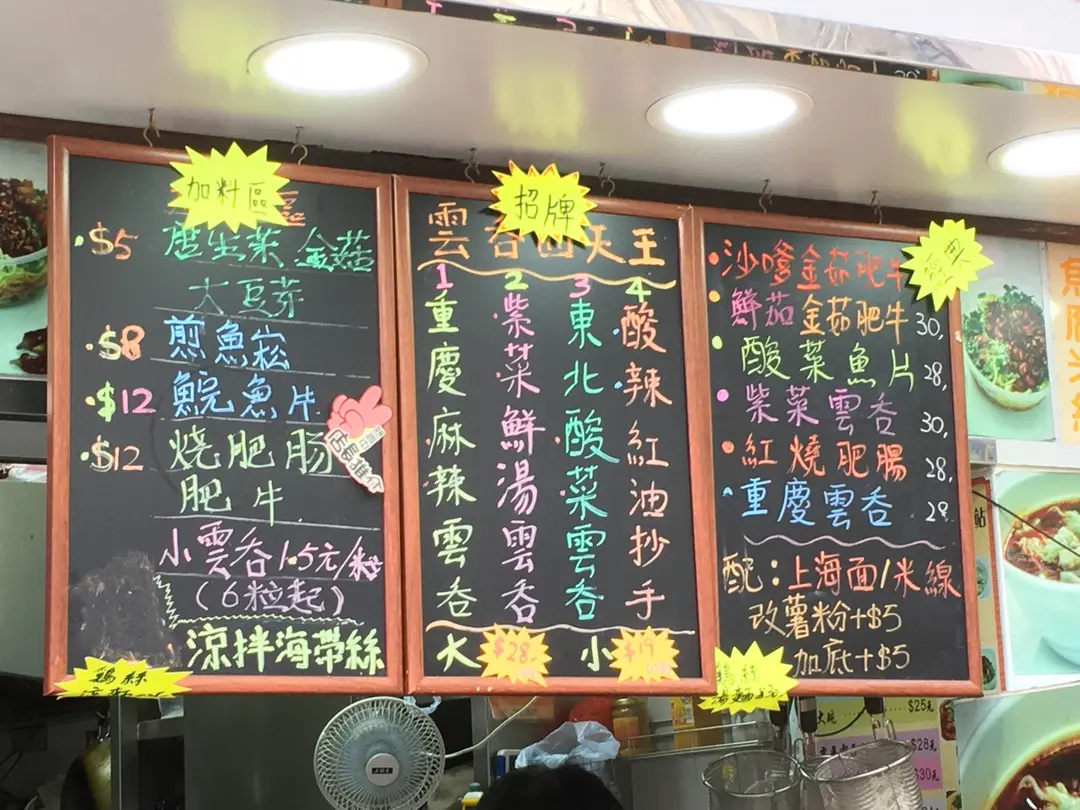 加料區
$5 唐生菜 金菇
大豆芽
$8 煎魚崧
$12 鯇魚片
$12 燒肥肠
肥牛
小雲吞1.5元/粒
(6粒起)
涼拌海帶絲
雞絲
招牌
雲吞四天王
1 重慶麻辣雲吞
2 紫菜鮮湯雲吞
3 東北酸菜雲吞
4 酸辣紅油抄手
大 $28 小 $19
經典
沙嗲金菇肥牛
鮮茄金菇肥牛 30,
酸菜魚片 28,
紫菜雲吞 30,
紅燒肥腸 28,
重慶雲吞 28
配:上海面/米線
改薯粉+$5
加底+$5
雞絲
$25元
$28元
$30元